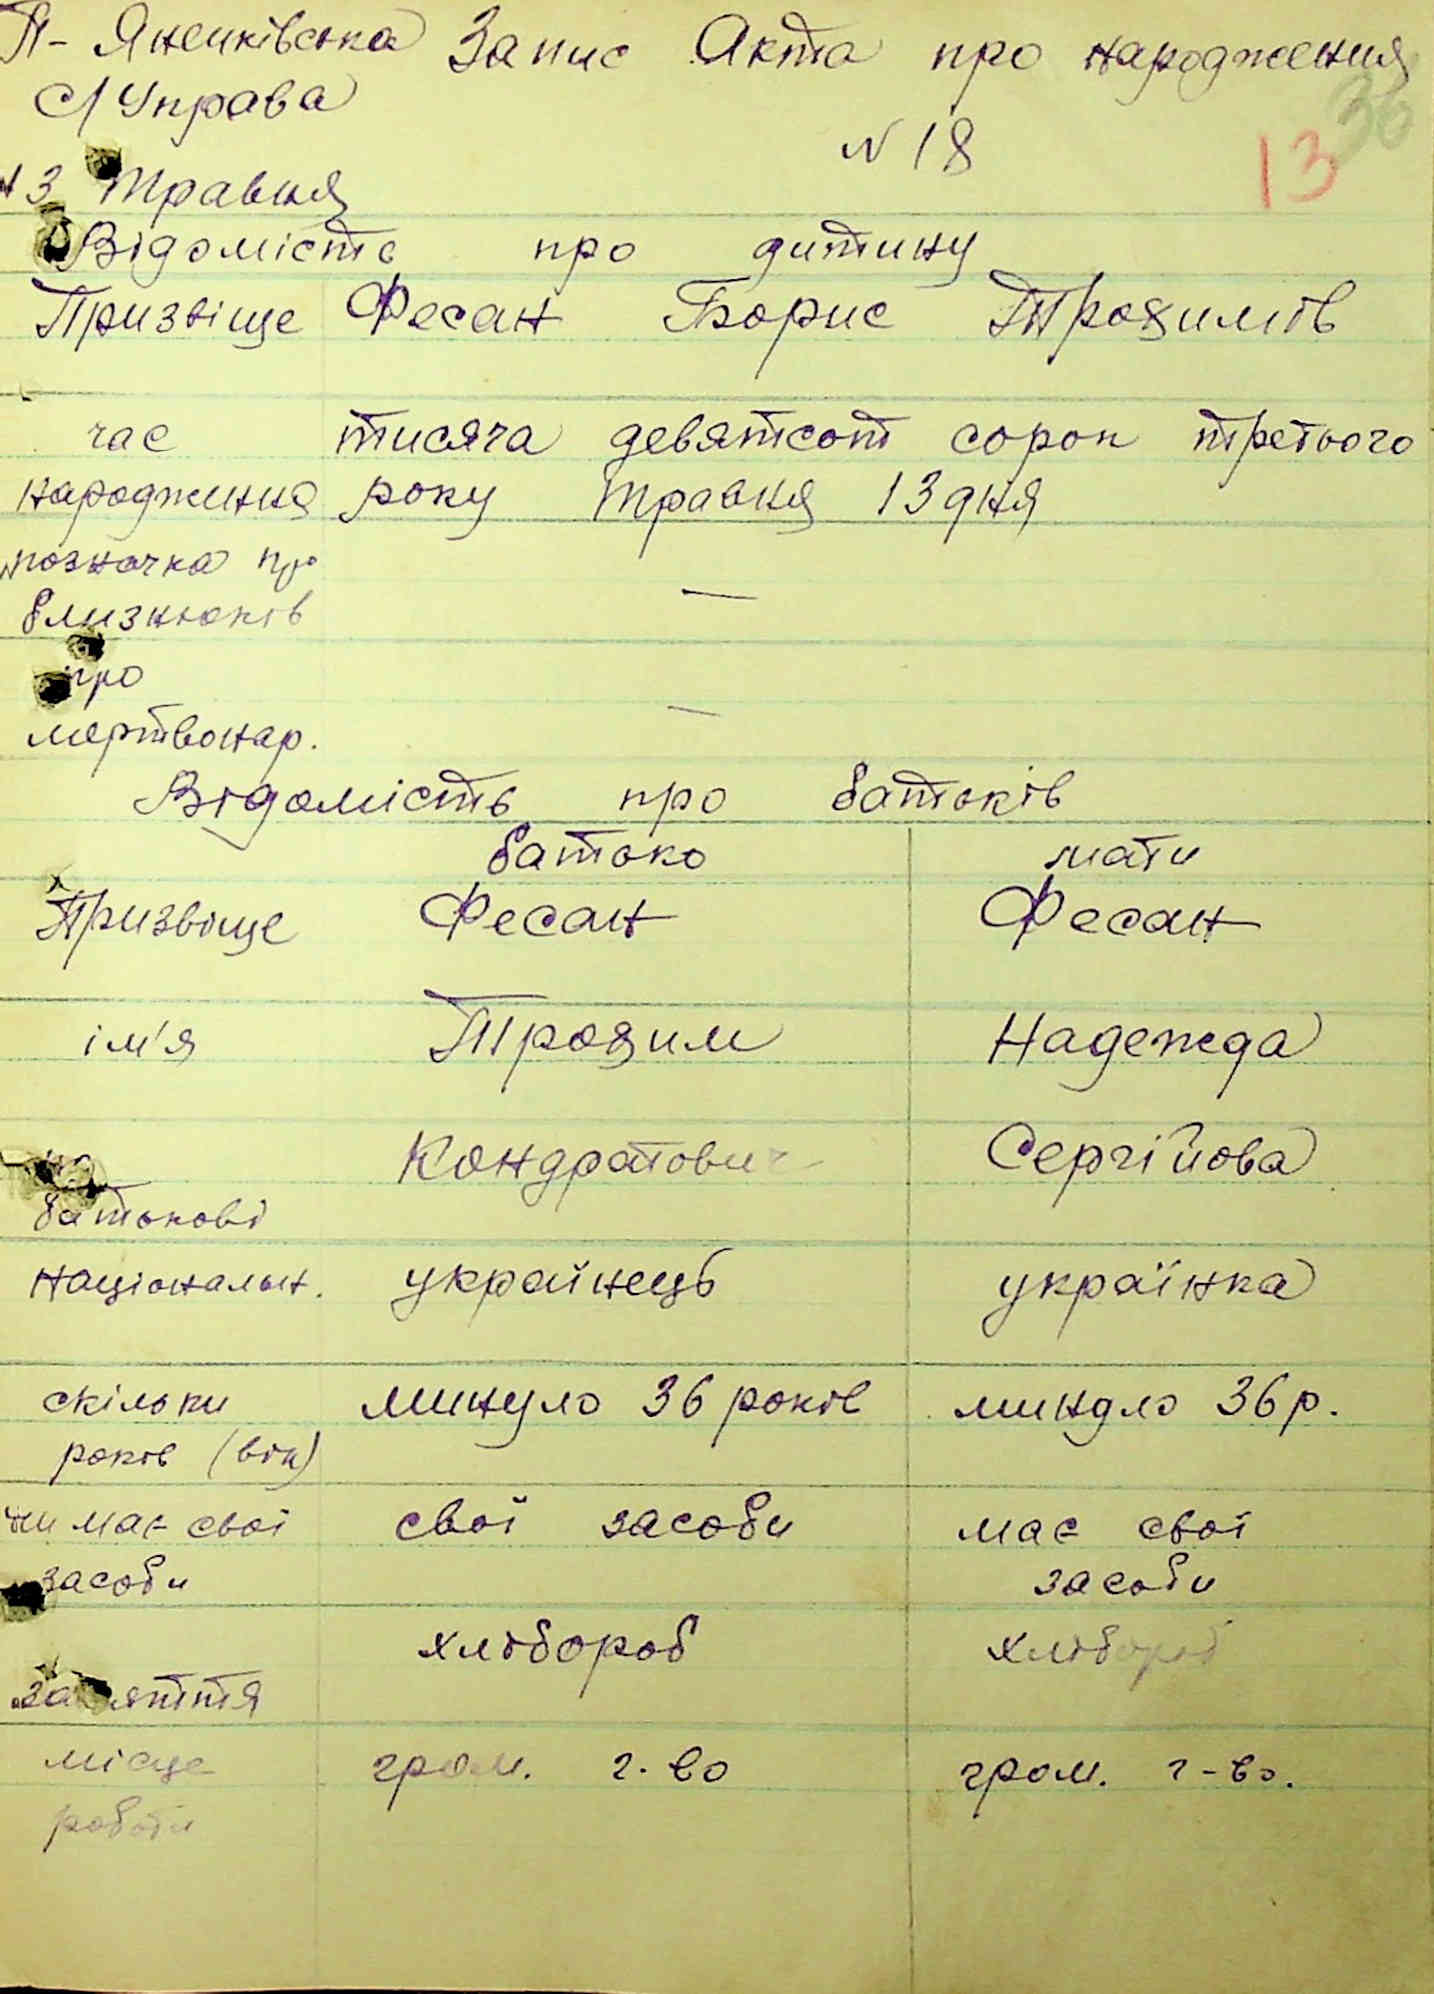 П- Яненківська Запис Акта про народження
С/Управа
36
N 18
13
13 травня
Відомість про дитину
Призвіще Фесан Борис Трохимів
час тисяча девятсот сорок третього
народження року травня 13 дня
позначка про
близнюків —
про
мертвонар. —
Відомість про батьків
батько мати
Призвіще Фесан Фесан
ім'я Трохим Надежда
Кондратович Сергійова
батькові
національн. українець українка
скільки минуло 36 років минуло 36 р.
років (вік)
чи має свої свої засоби має свої
засоби засоби
хлібороб хлібороб
заняття
місце гром. г-во гром. г-во.
роботи